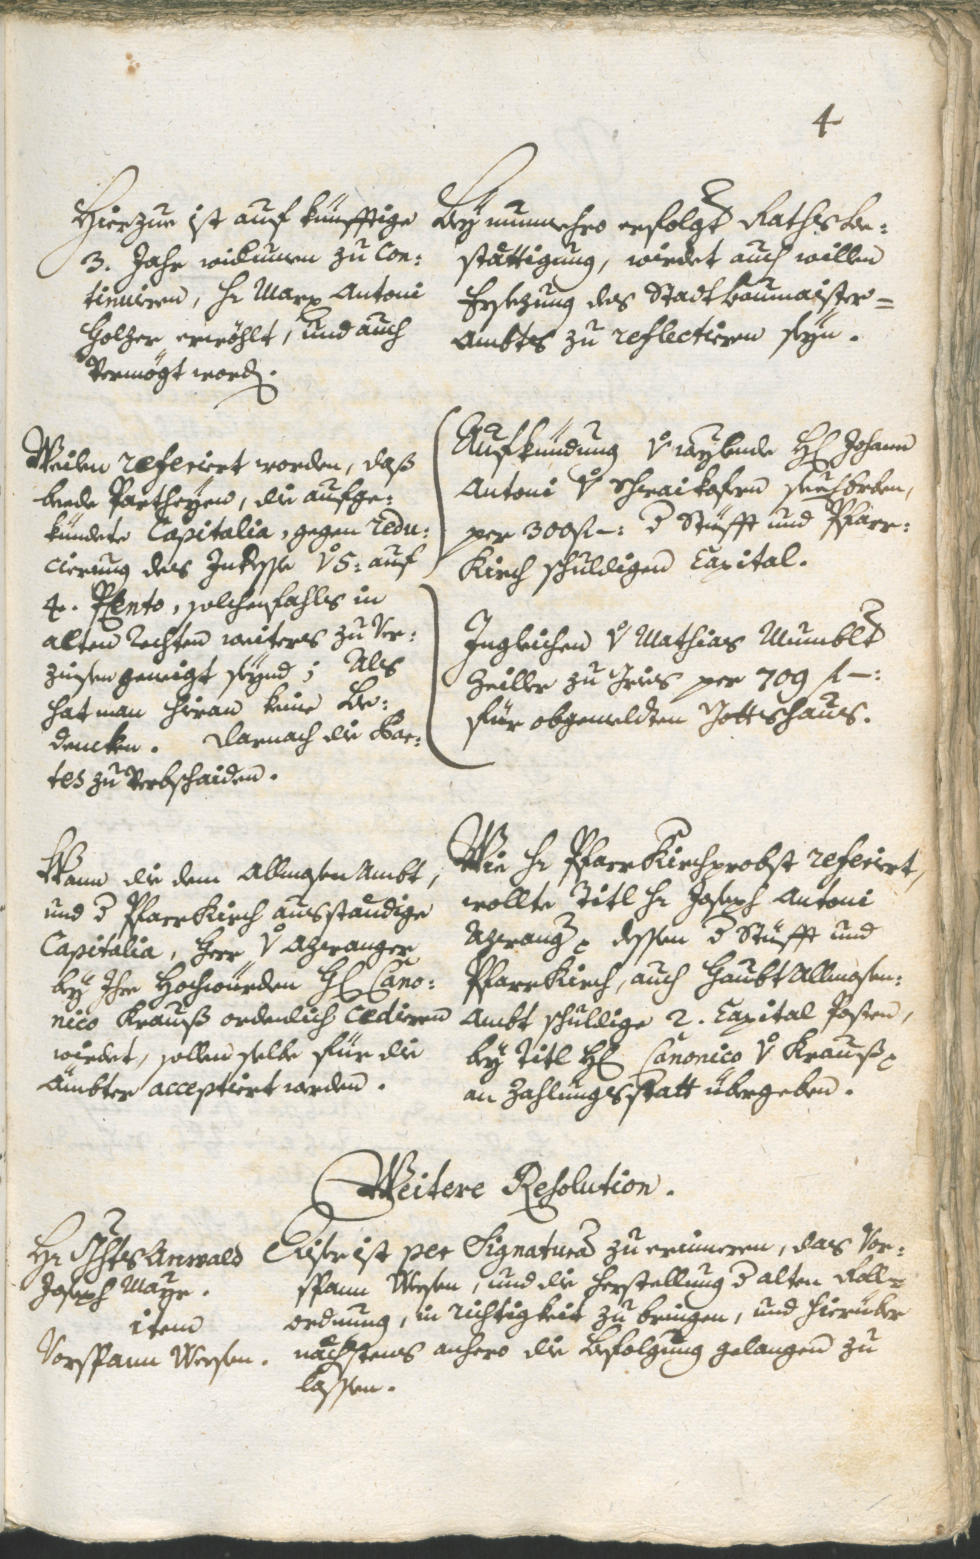 4
Hierzue ist auf künfftige
3. Jahr widumen zu Con:
tinuiren, H: Marx Antoni
Holzer erwöhlt, und auch
Vermögt word.
Bey nunmehro erfolgt Raths Be:
stättigung, wirdet auch willen
Ersezung des Stadt Baumaister=
Ambts zu reflectiren seyn.
Weilen referiert worden, daß
beede Partheyen, die aufge:
kündete Capitalia, gegen redu:
cierung des Intresse v 5: auf
4. P Cento, solchenfahls in
alten rechten weiters zu Ver:
zinsen geneigt seynd; Als
hat man hieran keine Be:
dencken. Darnach die Par:
tes zu Verbschaiden.
Aufkündung v weylende H: Johann
Antoni v seel: Erben,
per 300 f –: d Stüfft und Pfarr:
Kirch schuldigen Capital.
Ingleichen v Mathias Mumblt
Heiller zu Gries per 709 f –:
für obgemeldten Gottshaus.
Wann die dem Allmosen Ambt,
und d PfarrKirch ausständige
Capitalia, Herr v Azwanger
bey Ihr Hochwürden H: Cano:
nico Krauß ordenlich cediren
wirdet, sollen selbe für die
Ämbter acceptiert werden.
Wie H: PfarrKirchprobst referiert,
wollte Titl H: Joseph Antoni
Azwang. dessen d Stüfft und
PfarrKirch, auch HaubtAllmosen:
Ambt schuldige 2. Capital Posten,
bey Titl H: Canonico v Krauß
an Zahlungsstatt übergeben.
Weitere Resolution.
H: Anwald
Joseph Mayr.
item
Vorspann Weesen.
Diser ist per Signatura zu erinneren, das Vor:
spann Weesen, und die Herstellung d alten Roll=
ordnung, in richtigkeit zu bringen, und hierüber
nächstens anhero die Befolgung gelangen zu
lassen.